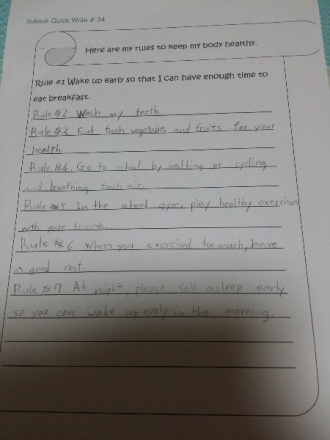 Subsuk Quick Write # 34
Here are my rules to keep my body healthy.
Rule #1 Wake up early so that I can have enough time to
eat breakfast.
Rule #2 Wach my teeth
Rule #3 Eat fresh vegebles and fruits for your
health.
Rule #4. Go to school by walking or cycling
and breathing fresh air.
Rule #5 In the school gym, play healthy exercises
with your friends.
Rule #6 When you exercised too much, have
a good rest.
Rule #7 At night, please fall asleep early
so you can wake up early in the morning.